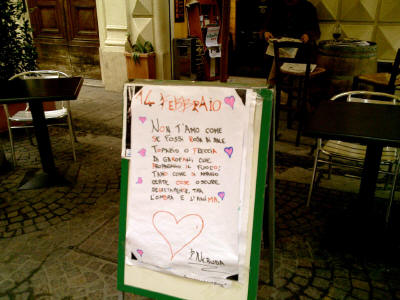 14 FEBBRAIO
NON T'AMO COME
SE FOSSI ROSA DI SALE
TOPAZIO O FRECCIA
DI GAROFANI CHE
PROPAGANO IL FUOCO:
T'AMO COME SI AMANO
CERTE COSE OSCURE
SEGRETAMENTE, TRA
L'OMBRA E L'ANIMA.
P. NERUDA